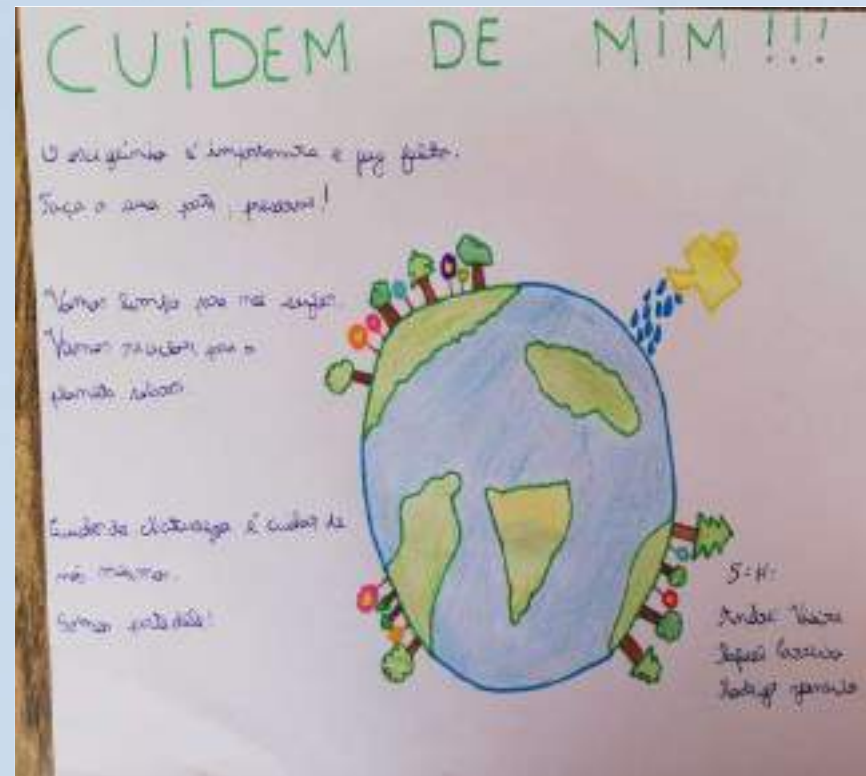 CUIDEM DE MIM!!!
O oxigénio é importante e faz falta.
Faça a sua parte, preserve!
Vamos limpar para não sujar.
Vamos reciclar para o
planeta salvar.
Cuidar da Natureza é cuidar de
nós mesmos.
Somos parte dela!
5º H:
André Vieira
Rafael Carreiro
Rodrigo